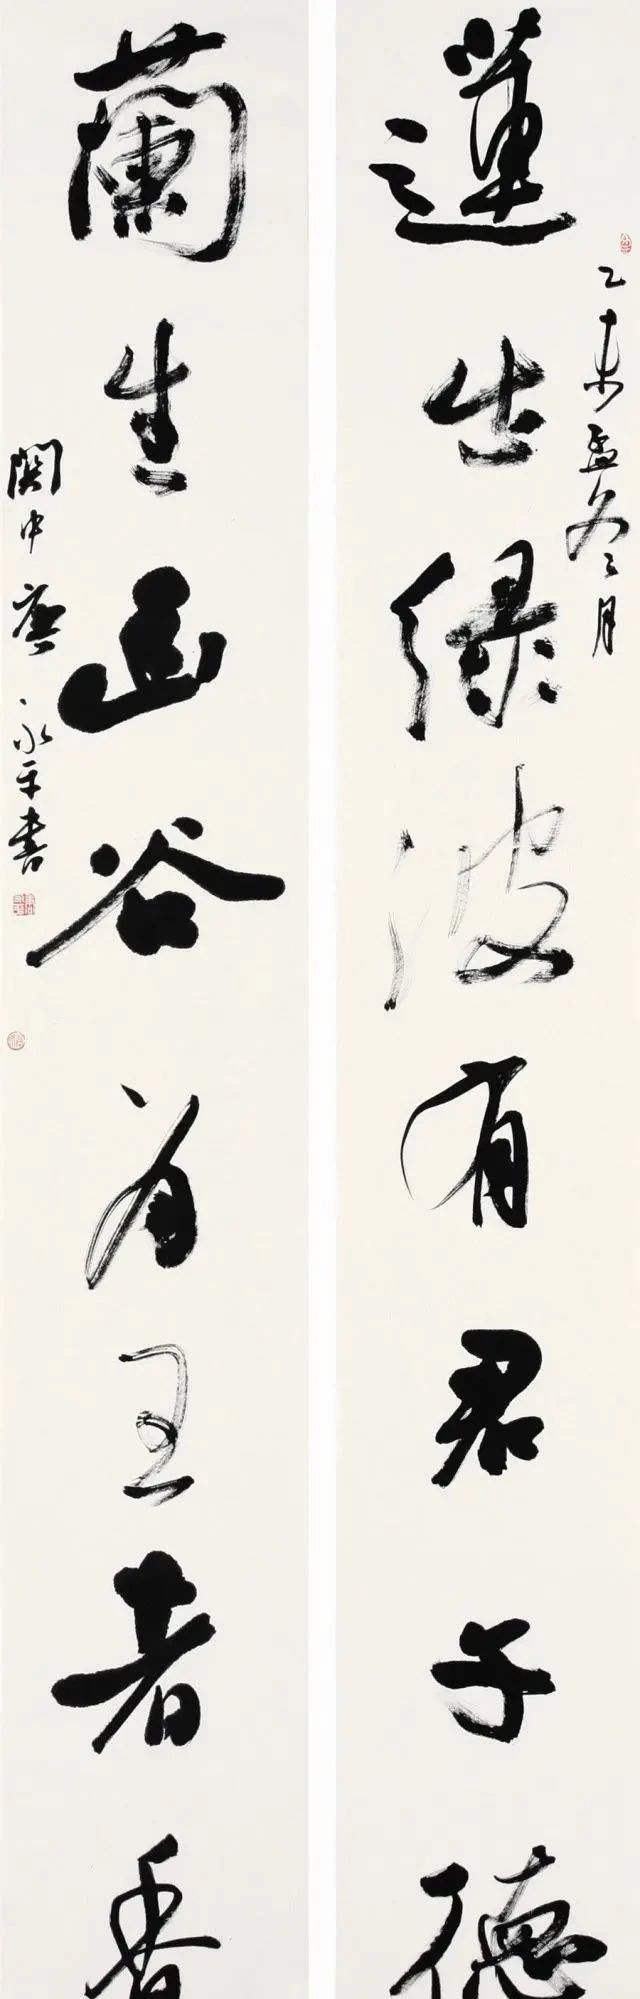 蓮出綠波有君子德
乙未孟冬之月
蘭生幽谷為王者香
關中唐永平書